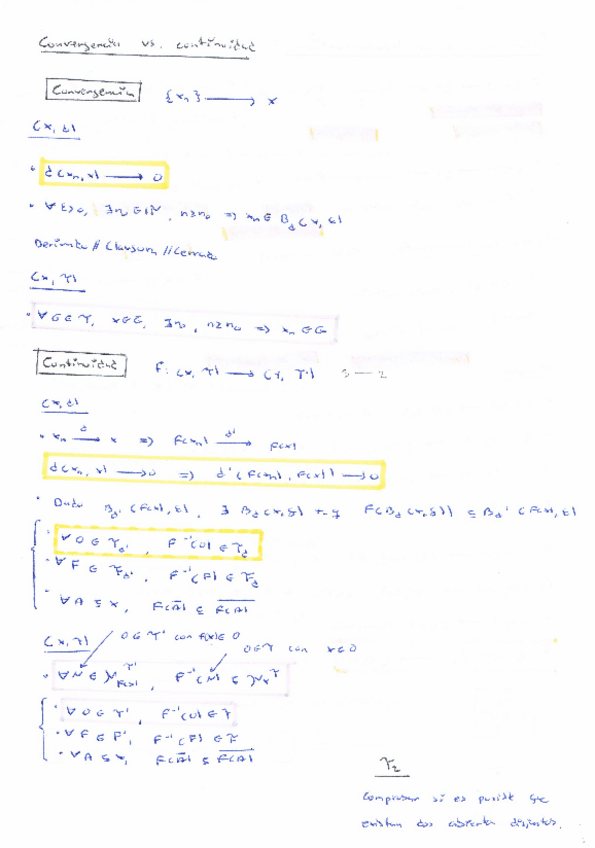 Convergencia vs. continuidad
Convergencia {xₙ} ⟶ x
(X, d)
• d(xₙ, x) ⟶ 0
• ∀ε>0, ∃n₀∈ℕ, n≥n₀ => xₙ ∈ B_d(x, ε)
Derivado // Clausura // Cerrado
(X, τ)
• ∀G∈τ, x∈G, ∃n₀, n≥n₀ => xₙ∈G
Continuidad f: (X, τ) ⟶ (Y, τ')
(X, d)
• xₙ ⟶ᵈ x => f(xₙ) ⟶ᵈ' f(x)
d(xₙ, x) ⟶ 0 => d'(f(xₙ), f(x)) ⟶ 0
• Dada B_d'(f(x), ε), ∃ B_d(x, δ) t.q f(B_d(x, δ)) ⊆ B_d'(f(x), ε)
• ∀O∈τ_d', f⁻¹(O) ∈ τ_d
• ∀F∈F_d', f⁻¹(F) ∈ F_d
• ∀A⊆X, f(A̅) ⊆ f(A)̅
(X, τ) O∈τ' con f(x)∈O
O∈τ con x∈O
• ∀N∈N_f(x)^τ', f⁻¹(N) ⊆ N_x^τ
• ∀O∈τ', f⁻¹(O)∈τ
• ∀F∈F', f⁻¹(F)∈F
• ∀A⊆X, f(A̅) ⊆ f(A)̅
T₂
Comprobar si es posible que
existan dos abiertos disjuntos.